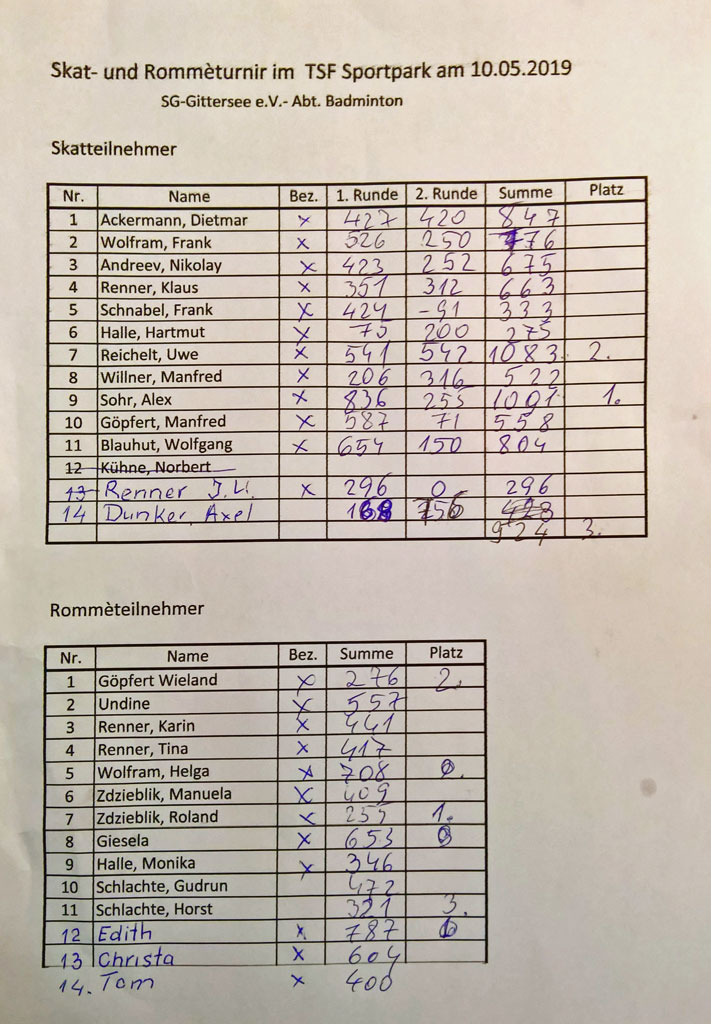 Skat- und Rommèturnir im TSF Sportpark am 10.05.2019
SG-Gittersee e.V.- Abt. Badminton
Skatteilnehmer
Nr. Name Bez. 1. Runde 2. Runde Summe Platz
1 Ackermann, Dietmar x 427 420 847
2 Wolfram, Frank x 526 250 776
3 Andreev, Nikolay x 423 252 675
4 Renner, Klaus x 351 312 663
5 Schnabel, Frank x 424 -91 333
6 Halle, Hartmut x 75 200 275
7 Reichelt, Uwe x 541 542 1083. 2.
8 Willner, Manfred x 206 316 522
9 Sohr, Alex x 836 255 1091 1.
10 Göpfert, Manfred x 587 71 558
11 Blauhut, Wolfgang x 654 150 804
12 Kühne, Norbert
13 Renner J.U. x 296 0 296
14 Dunker, Axel 168 756
924 3.
Rommèteilnehmer
Nr. Name Bez. Summe Platz
1 Göpfert Wieland x 276 2.
2 Undine x 557
3 Renner, Karin x 441
4 Renner, Tina x 417
5 Wolfram, Helga x 708
6 Zdzieblik, Manuela x 409
7 Zdzieblik, Roland x 255 1.
8 Giesela x 653
9 Halle, Monika x 346
10 Schlachte, Gudrun 472
11 Schlachte, Horst 321 3.
12 Edith x 787
13 Christa x 604
14. Tom x 400